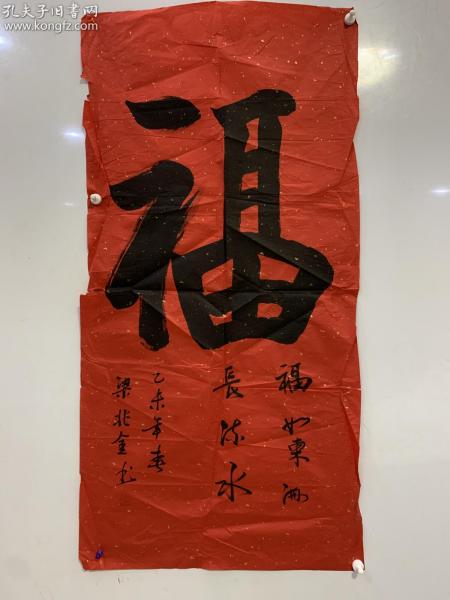 孔夫子旧书网
www.kongfz.com
福
福如東海
長流水
乙未年春
梁兆金书